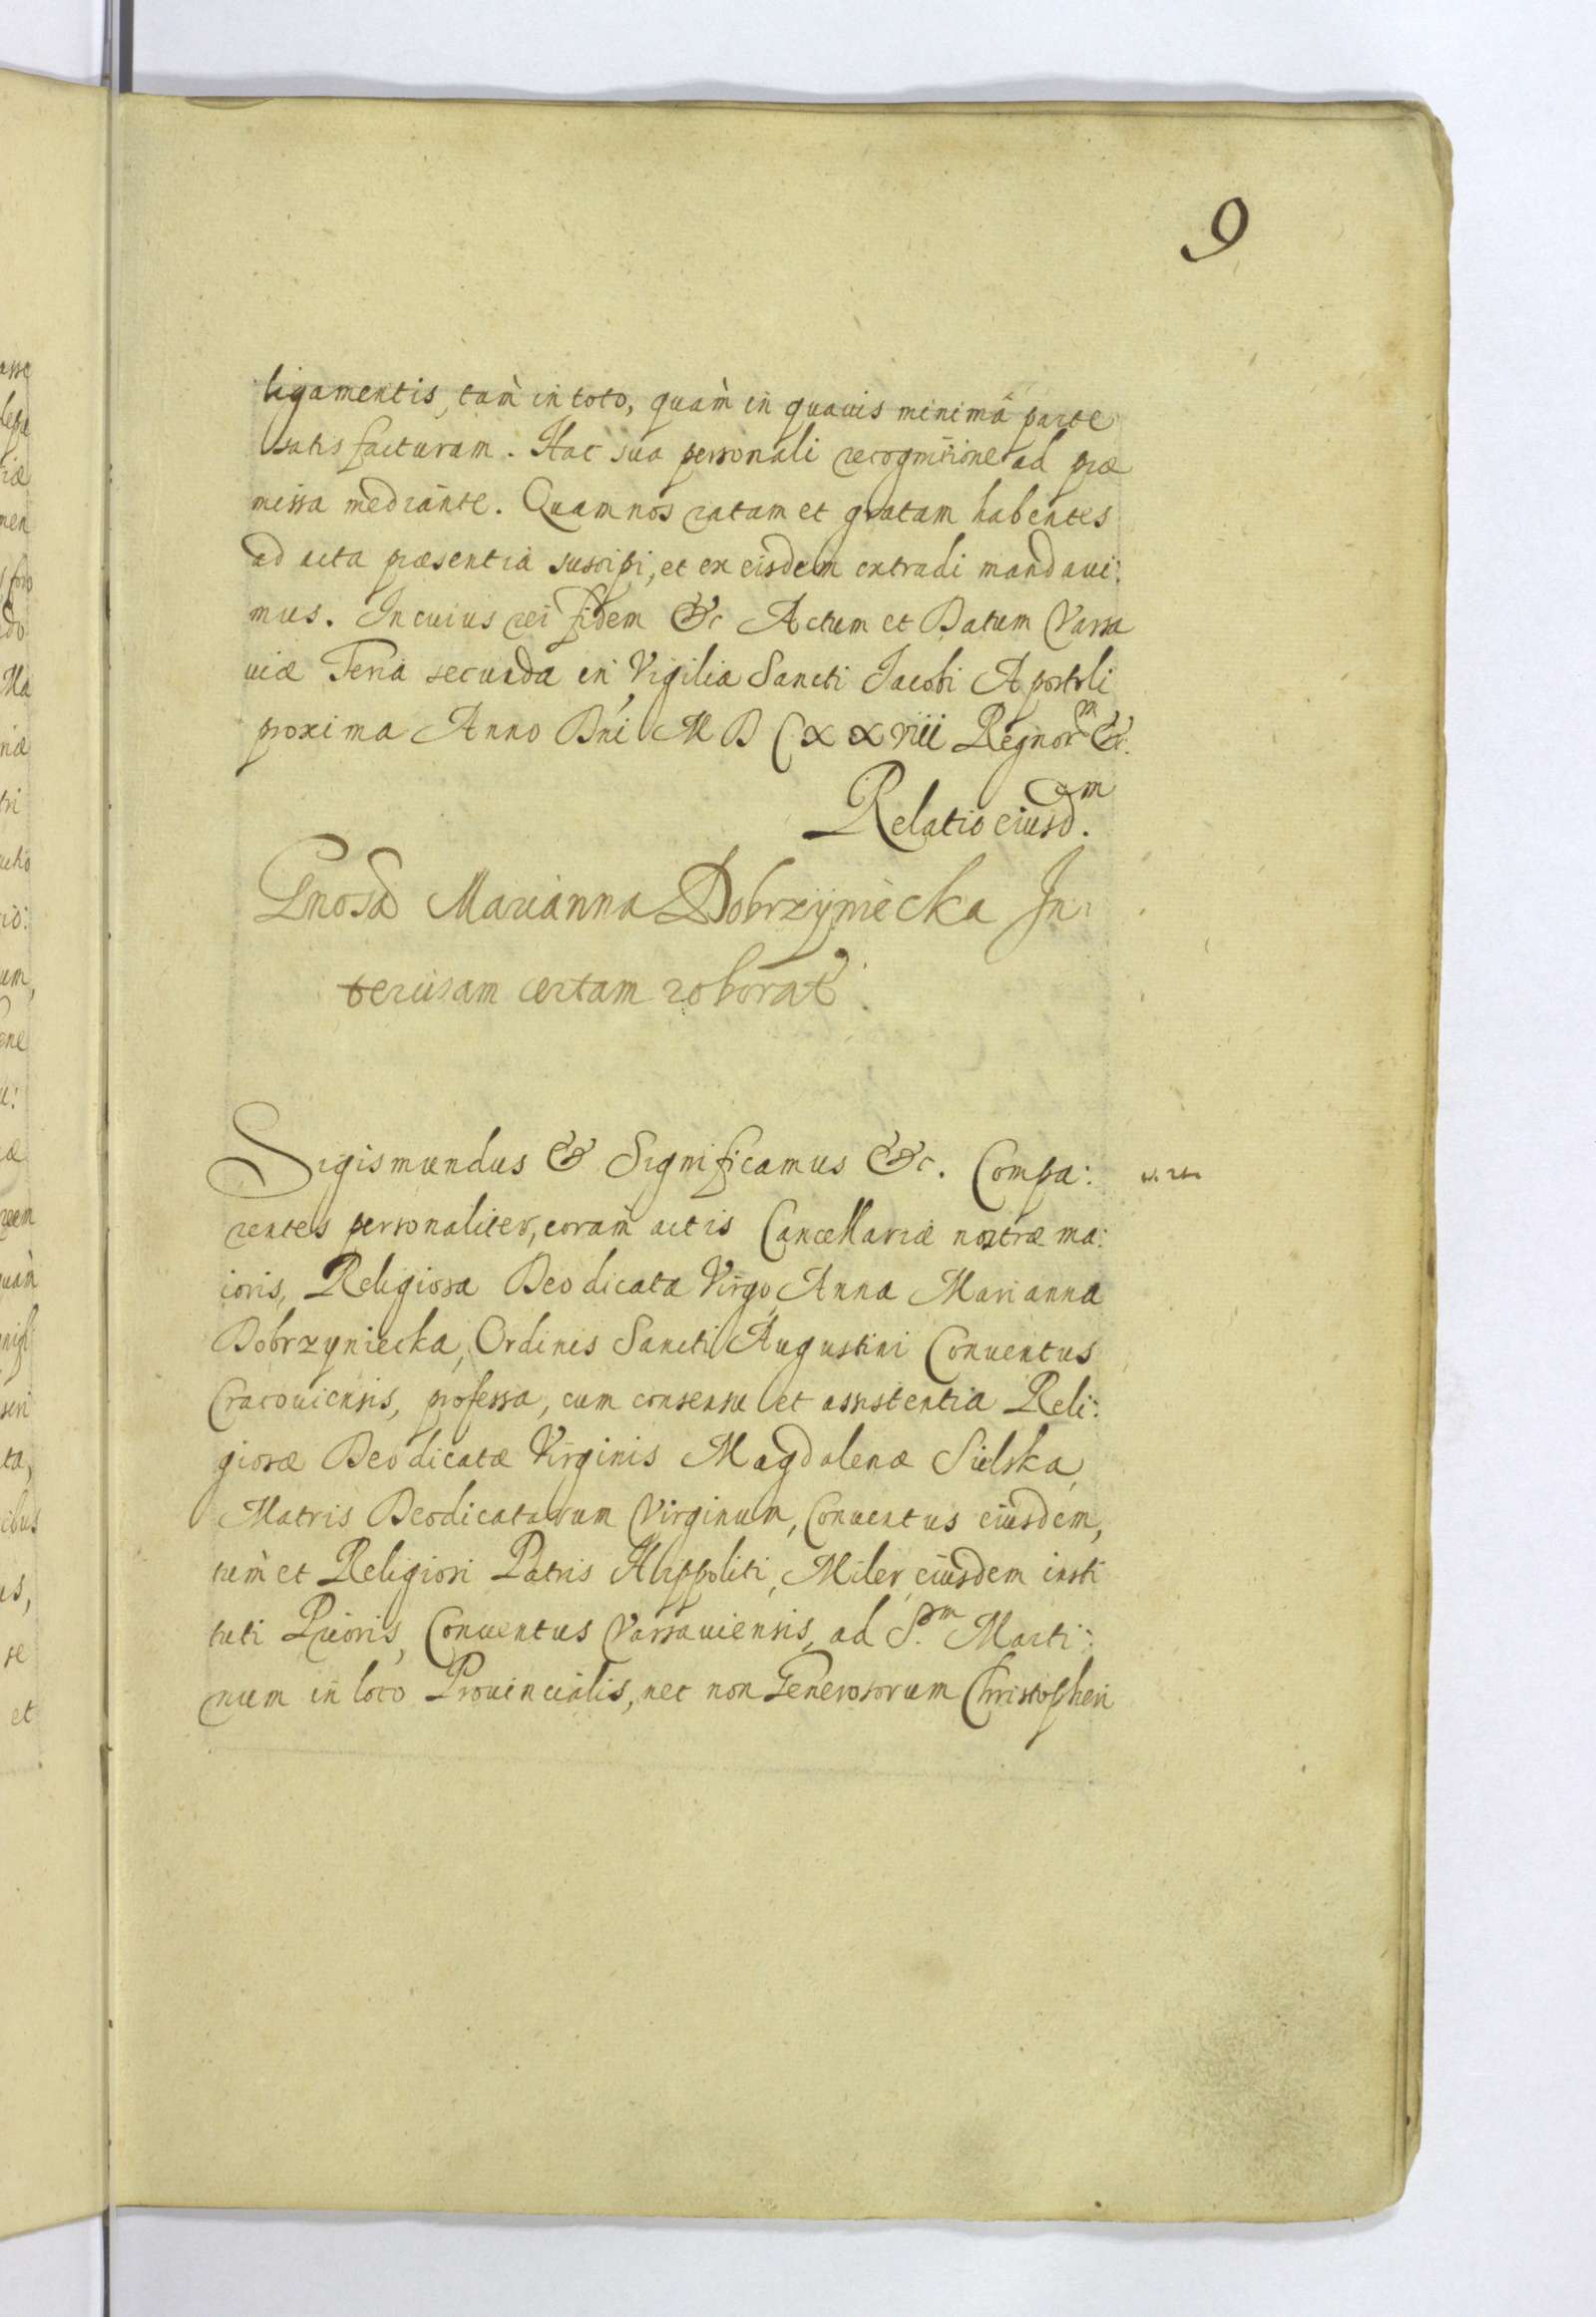 9
ligamentis, tam̀ in toto, quam̀ in quauis minimâ parte
satis facturam. Hac sua personali recognitione ad præ
missa mediante. Quam nos ratam et gratam habentes
ad acta præsentia suscipi, et ex eisdem extradi mandaui:
mus. In cuius rei fidem &c Actum et Datum Varsa
uiæ Feria secunda in Vigilia Sancti Jacobi Apostoli
proxima Anno Dni M D C x x viii Regnorm &.
Relatio eiusdm.
Gnosa Marianna Dobrzyniecka In
tercisam certam roborat
Sigismundus & Significamus &c. Compa:
rentes personaliter, coram actis Cancellariæ nostræ ma:
ioris, Religiosa Deo dicata Virgo Anna Marianna
Dobrzyniecka, Ordinis Sancti Augustini Conuentus
Cracouiensis, professa, cum consensu et assistentia Reli:
giosæ Deo dicatæ Virginis Magdalenæ Sielska,
Matris Deodicatarum Virginum, Conuentus eiusdem,
tum̀ et Religiosi Patris Hippoliti, Miler, eiusdem insti
tuti Prioris, Conuentus Varsauiensis, ad S.m Marti:
num in loco Prouincialis, nec non Generosorum Christopheri